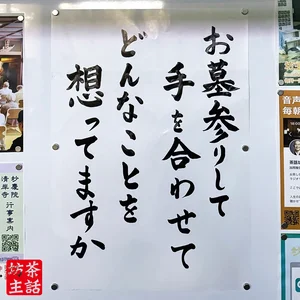 お墓参りして
手を合わせて
どんなことを
想ってますか
音声
毎朝
妙慶院
清岸寺
行事案内
坊主
茶話